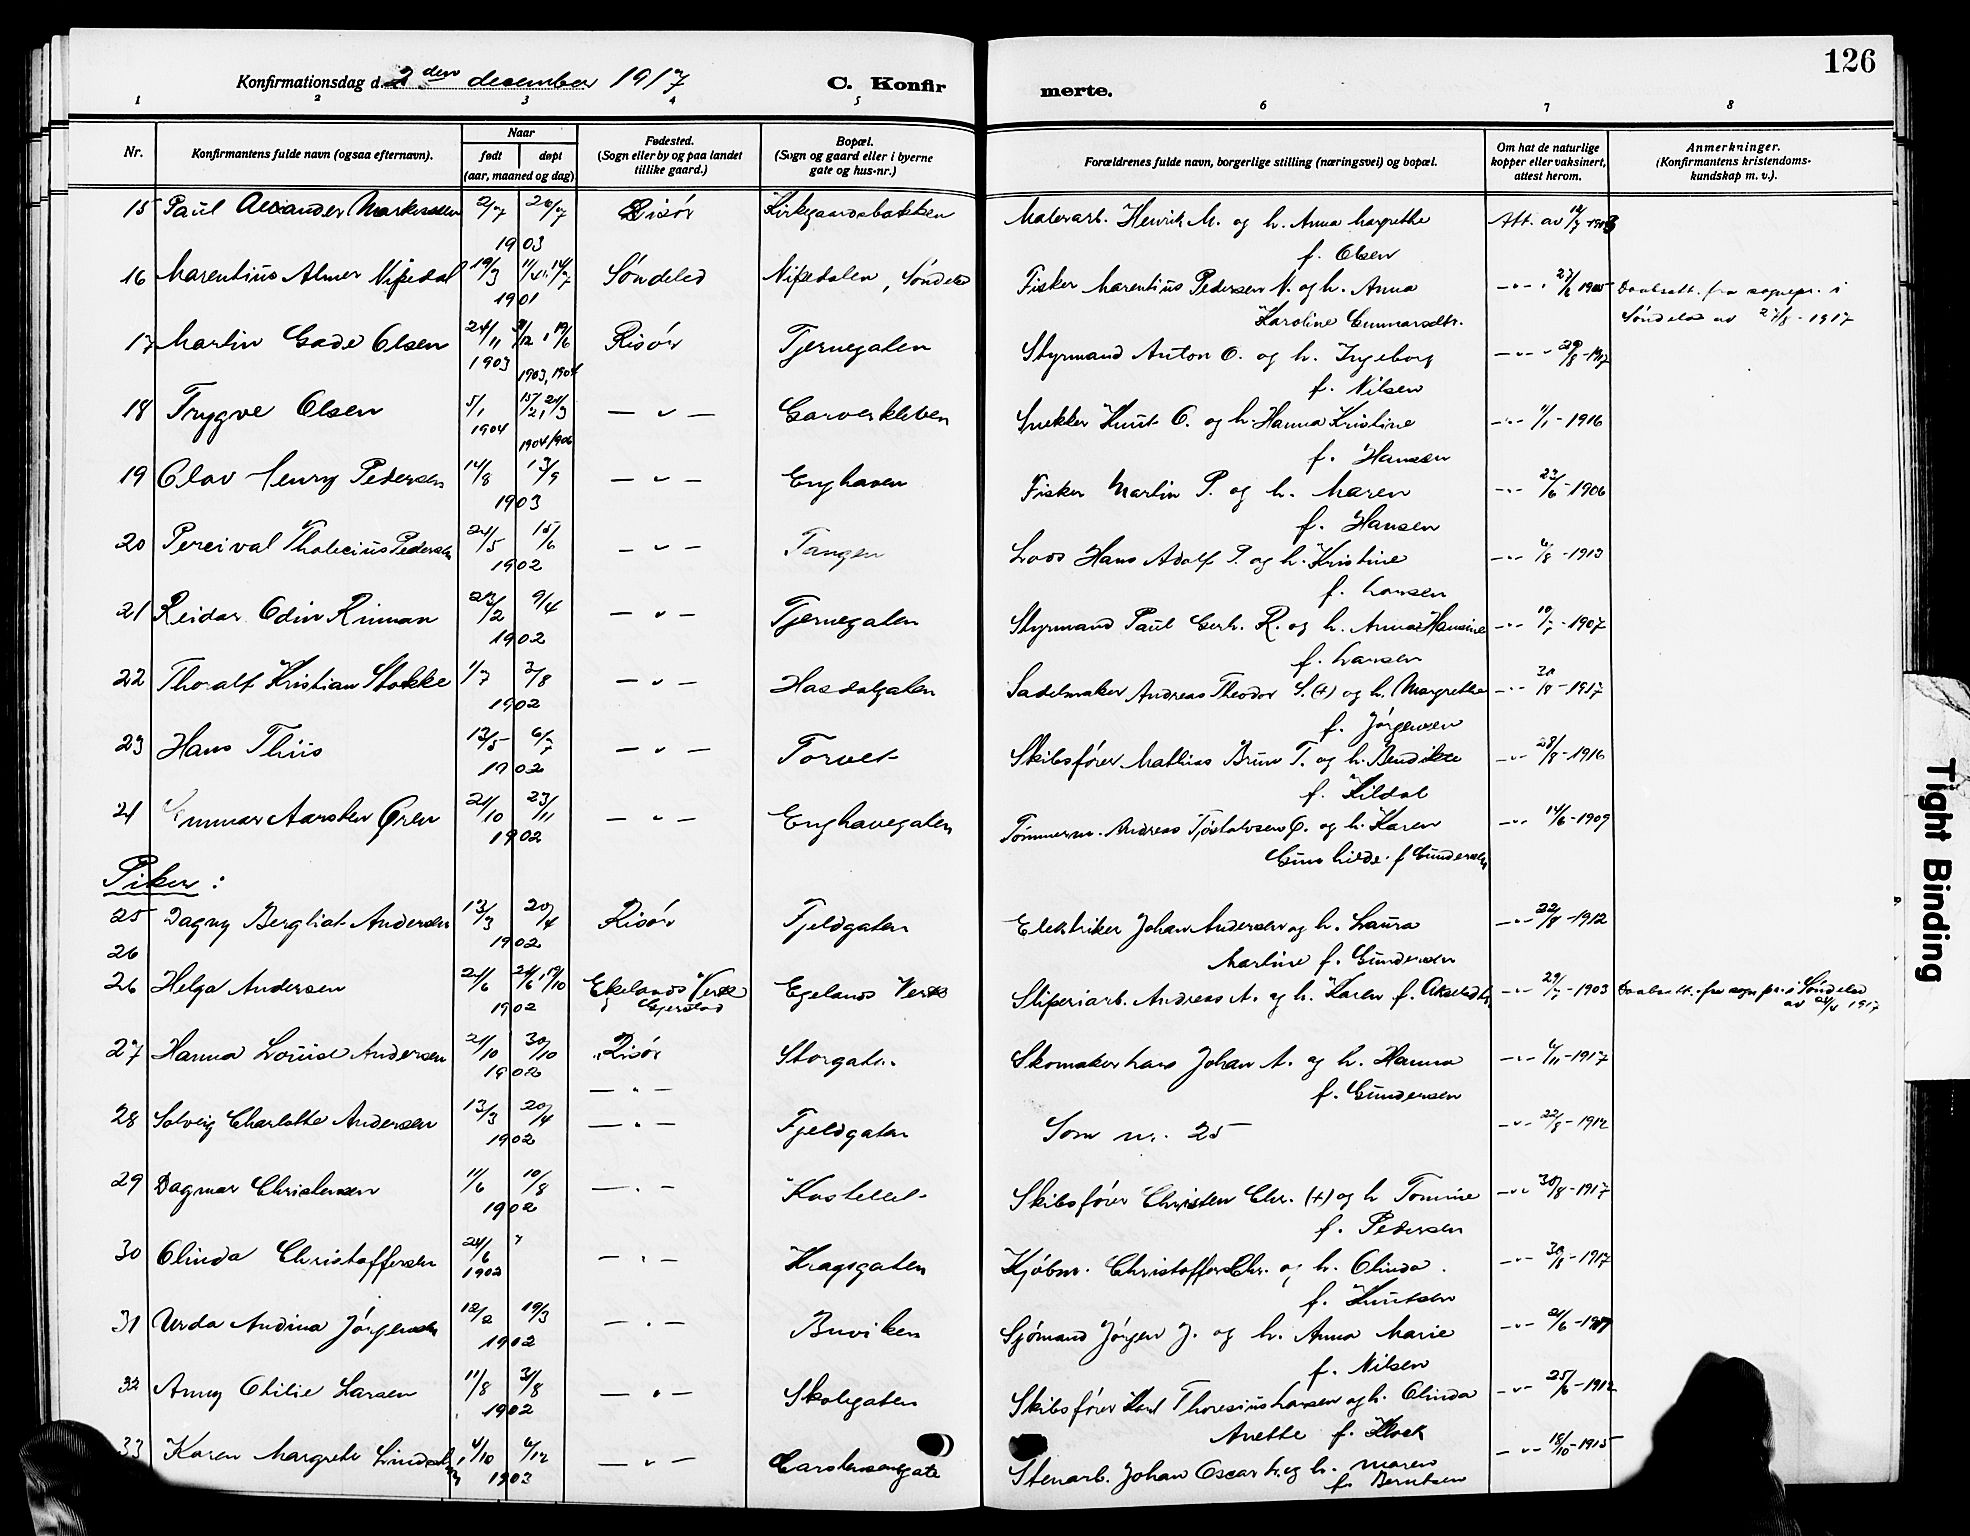 126
Konfirmationsdag d. 2den desember 1917
C. Konfirmerte.
1 2 3 4 5 6 7 8
Nr.
Konfirmantens fulde navn (ogsaa efternavn).
Naar
født døpt
(aar, maaned og dag)
Fødested.
(Sogn eller by og paa landet
tillike gaard.)
Bopæl.
(Sogn og gaard eller i byerne
gate og hus-nr.)
Forældrenes fulde navn, borgerlige stilling (næringsvei) og bopæl.
Om hat de naturlige
kopper eller vaksinert,
attest herom.
Anmerkninger.
(Konfirmantens kristendoms-
kundskap m. v.).
15 Paul Alexander Markussen 2/7 26/7 Risør Kirkegaardsbakken Malerarb. Henrik M. og h. Anna Margrethe Att. av
1903 f. Olsen
16 Marentius Almer Nipedal 19/3 Søndeled Nipedalen, Søndeled Fisker Marentius Pedersen N. og h. Anna Daabsatt. fra sognepr. i
1901 Karoline Gunnarsdtr. Søndeled av 27/8-1917
17 Martin Gade Olsen 24/11 Risør Tjernegaten Styrmand Anton O. og h. Ingeborg
1903 1903, 1904 f. Nilsen
18 Trygve Olsen 5/1 — " — Garverkleven Snekker Knut O. og h. Hanna Kristine — " — 11/1-1916
1904 1904/1906 f. Hansen
19 Olav Henry Pedersen 14/8 13/9 — " — Enghaven Fisker Martin P. og h. Maren — " — 23/6-1906
1903 f. Hansen
20 Percival Pedersen 24/5 15/6 — " — Tangen Lods Hans Adolf P. og h. Kristine — " — 6/8-1913
1902 f. Larsen
21 Reidar Odin Rinman 23/2 9/4 — " — Tjernegaten Styrmand Paul Gerh. R. og h. Anna Hansine — " — 10/7-1907
1902 f. Larsen
22 Thoralf Kristian Stokke 1/7 3/8 — " — Hasdalgaten Sadelmaker Andreas Theodor S. (+) og h. Margrethe
1902 f. Jørgensen
23 Hans Thiis 13/5 6/7 — " — Torvet Skibsfører Mathias Brun T. og h. Bendikte — " — 28/8-1916
1902 f. Kildal
24 Gunnar Aarsten Øren 21/10 23/11 — " — Enghavegaten Tømmerm. Andreas Tjøstolvsen Ø. og h. Karen — " — 14/6-1909
1902 Gunhilde f. Gundersen
Piker:
25 Dagny Bergliot Andersen 13/3 20/4 Risør Fjeldgaten Elektriker Johan Andersen og h. Laura — " — 22/8-1912
26 1902 Martine f. Gundersen
26 Helga Andersen 24/6 Egelands Verk Egelands Verk Sliperiarb. Andreas A. og h. Karen f. — " — 29/7-1903 Daabsatt. fra sognpr. i Søndeled
1902 Gjerstad av 1917
27 Hanna Louise Andersen 21/10 30/10 Risør Storgaten Skomaker Hans Johan A. og h. Hanna — " — 6/11-1917
1902 — " — f. Gundersen
28 Solveig Charlotte Andersen 13/3 20/4 — " — Fjeldgaten Som nr. 25 — " — 22/8-1912
1902
29 Dagmar Christensen 11/6 10/8 — " — Kastellet Skibsfører Christen Chr. (+) og h. Tomine — " — 30/8-1917
1902 f. Pedersen
30 Olinda Christoffersen 24/6 " — " — Kragsgaten Kjøbm. Christoffer Chr. og h. Olinda — " — 30/8-1917
1902 f. Knutsen
31 Verda Andina Jørgensen 12/2 19/3 — " — Buviken Sjømand Jørgen J. og h. Anna Marie
1902 f. Nilsen
32 Anny Otilie Larsen 11/8 31/8 — " — Skolegaten Skibsfører Karl Thoresius Larsen og h. Olinda — " — 25/6-1912
1902 Anette f. Klock
33 Karen Margrete 4/10 6/12 — " — Carstensensgate Stenarb. Johan Oscar L. og h. Maren — " — 18/10-1915
1903 f. Berntsen
Tight Binding